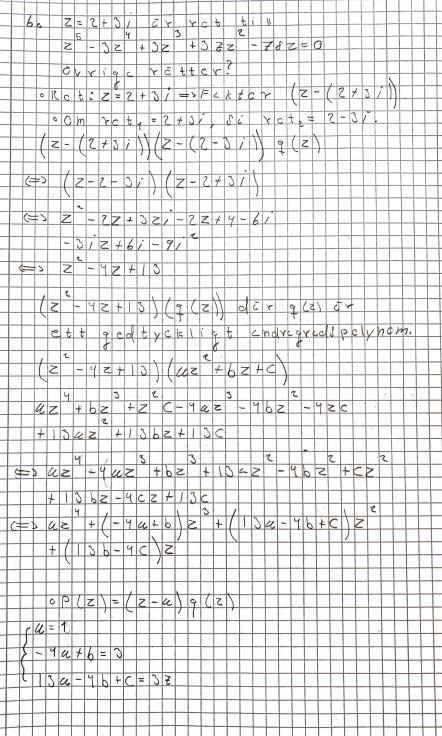 6. z = 2 + 3i är rot till
z⁵ - 3z⁴ + 3z³ + 37z² - 78z = 0
Övriga rötter?
∘ Rot: z = 2 + 3i => Faktor (z - (2 + 3i))
∘ Om rot₁ = 2 + 3i, så rot₂ = 2 - 3i.
(z - (2 + 3i))(z - (2 - 3i)) q(z)
<=> (z - 2 - 3i)(z - 2 + 3i)
<=> z² - 2z + 3zi - 2z + 4 - 6i
- 3iz + 6i - 9i²
<=> z² - 4z + 13
(z² - 4z + 13)(q(z)) där q(z) är
ett godtyckligt andragradspolynom.
(z² - 4z + 13)(az² + bz + c)
az⁴ + bz³ + z²c - 4az³ - 4bz² - 4zc
+ 13az² + 13bz + 13c
<=> az⁴ - 4az³ + bz³ + 13az² - 4bz² + cz²
+ 13bz - 4cz + 13c
<=> az⁴ + (-4a + b)z³ + (13a - 4b + c)z²
+ (13b - 4c)z
∘ P(z) = (z - a) q(z)
a = 1
-4a + b = 3
13a - 4b + c = 37